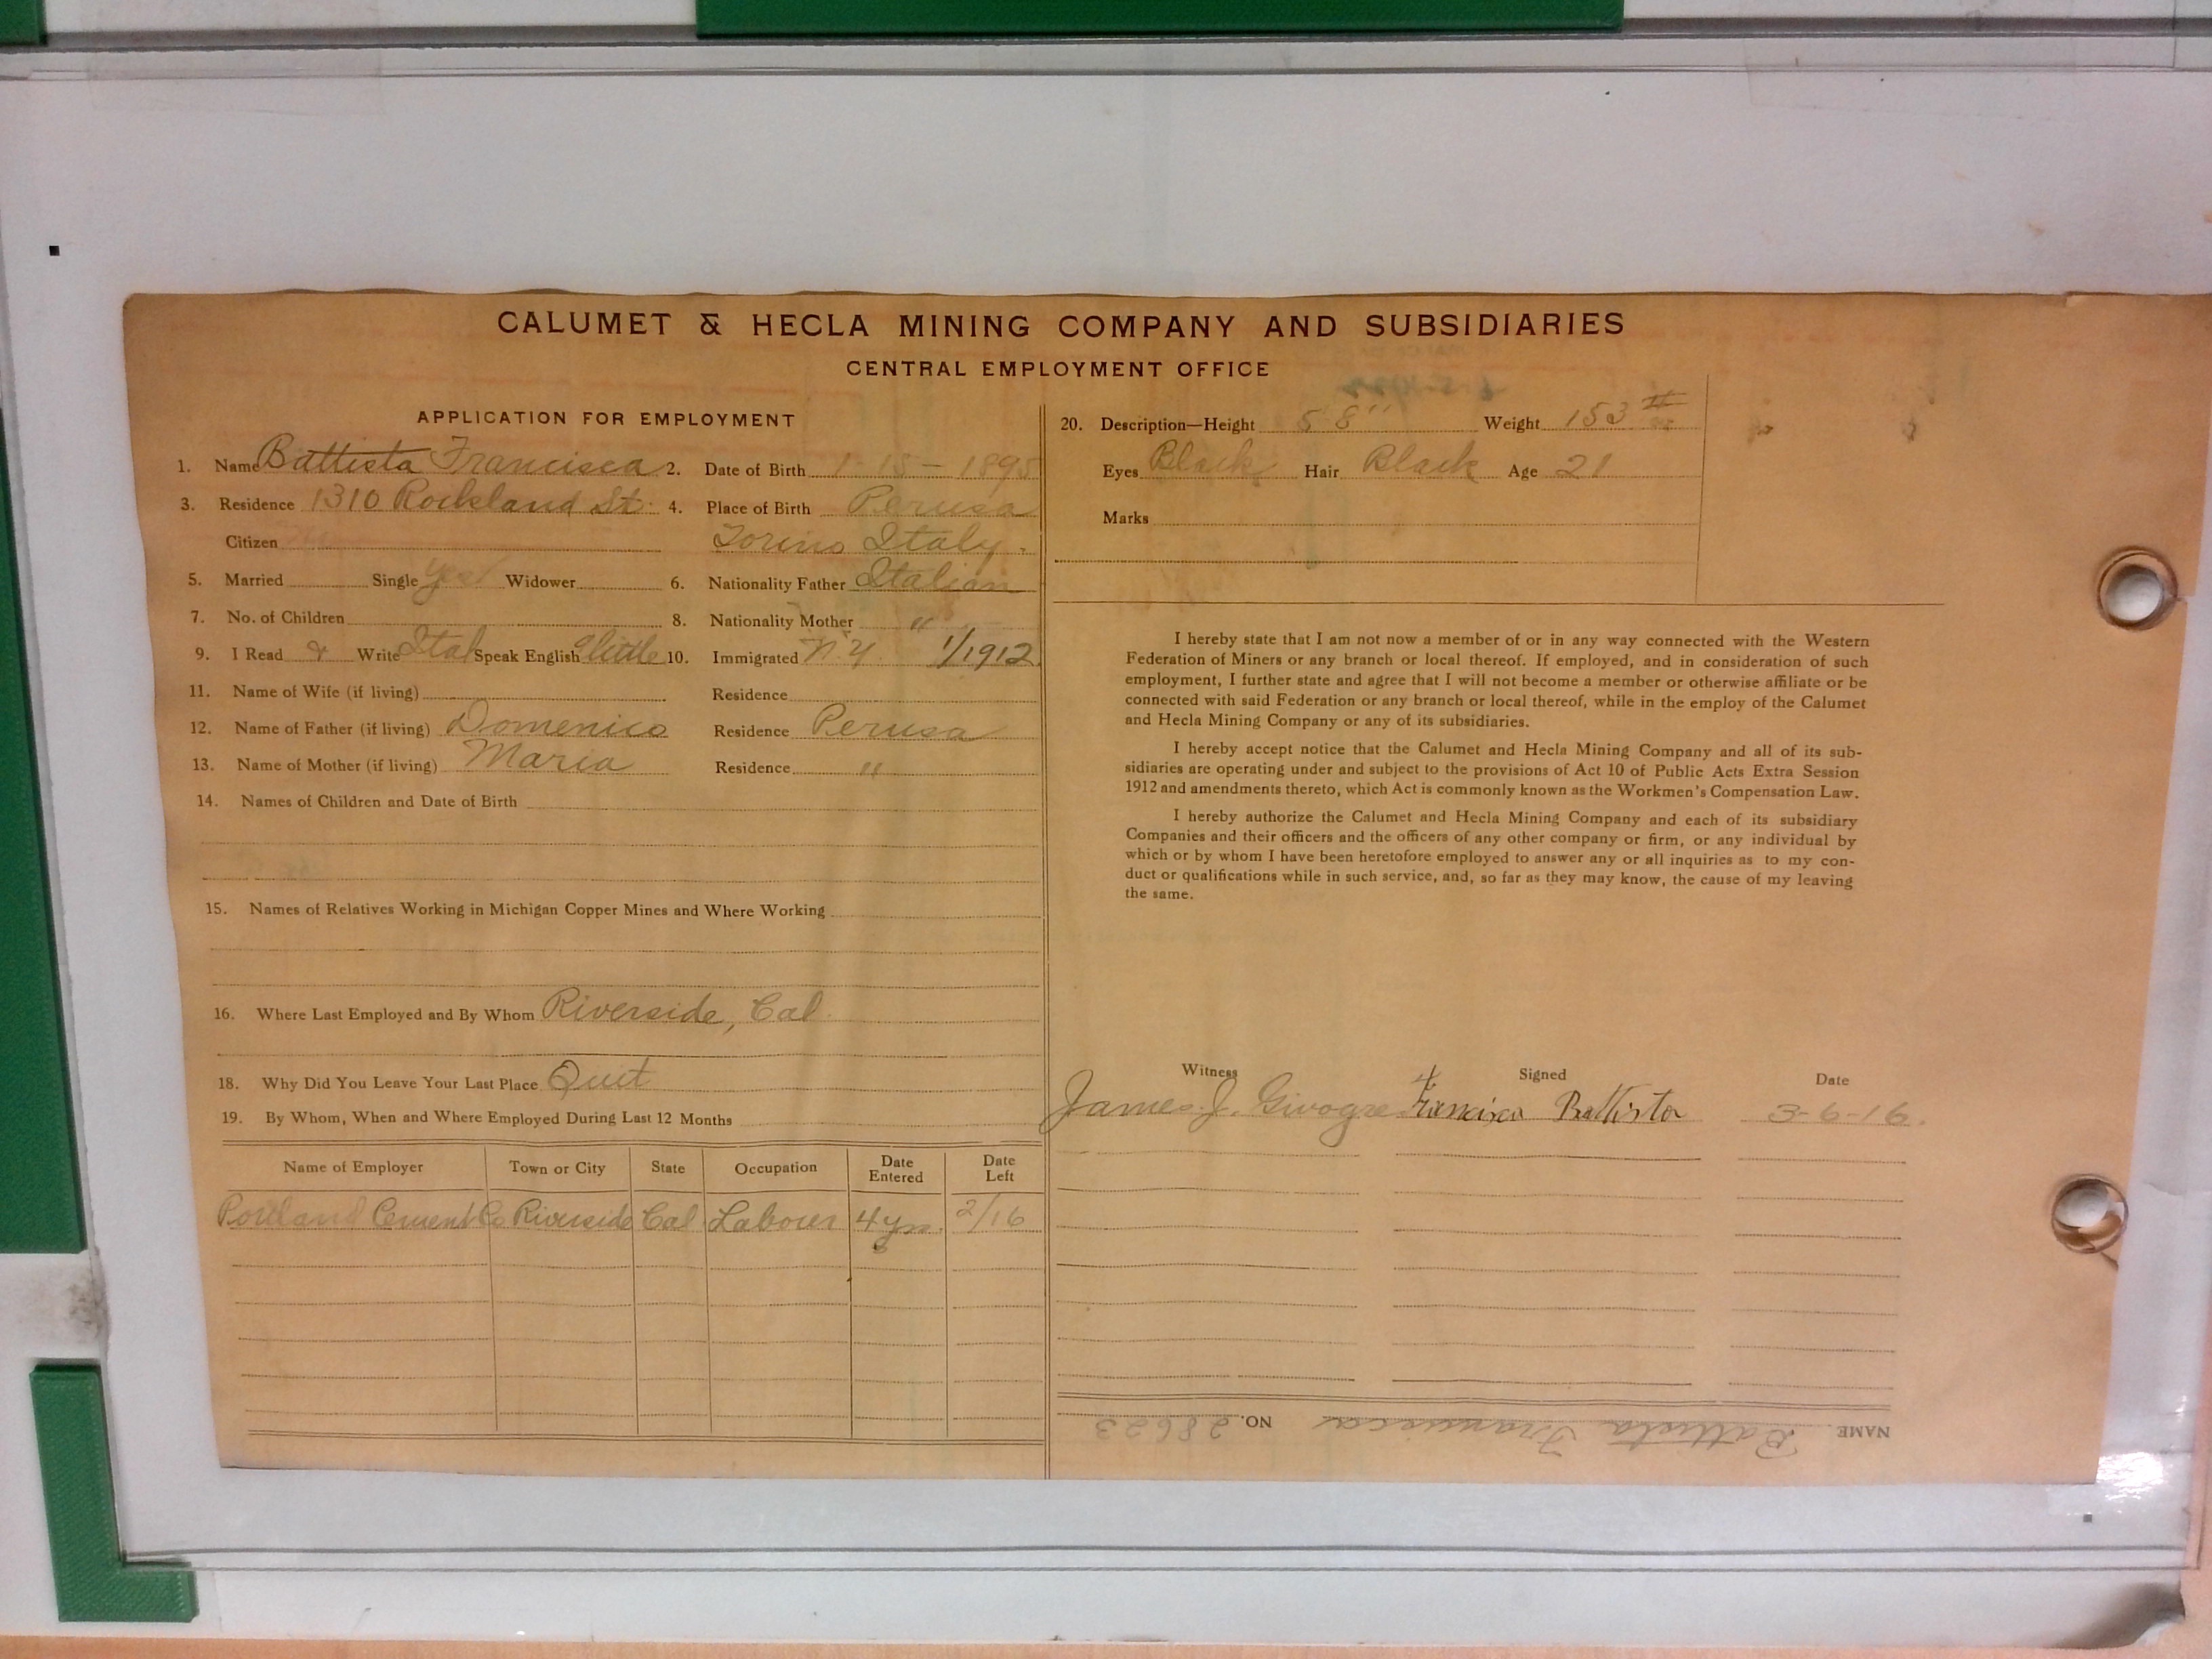 CALUMET & HECLA MINING COMPANY AND SUBSIDIARIES
CENTRAL EMPLOYMENT OFFICE
APPLICATION FOR EMPLOYMENT
1. Name Battista Francisca 2. Date of Birth 1-15-1895
3. Residence 1310 Rockland St. 4. Place of Birth Perusa
Citizen Torino Italy.
5. Married Single Yes Widower 6. Nationality Father Italian
7. No. of Children 8. Nationality Mother "
9. I Read & Write Ital Speak English little 10. Immigrated N.Y. 1/1912
11. Name of Wife (if living) Residence
12. Name of Father (if living) Domenico Residence Perusa
13. Name of Mother (if living) Maria Residence "
14. Names of Children and Date of Birth
15. Names of Relatives Working in Michigan Copper Mines and Where Working
16. Where Last Employed and By Whom Riverside, Cal.
18. Why Did You Leave Your Last Place Quit
19. By Whom, When and Where Employed During Last 12 Months
Name of Employer Town or City State Occupation Date Entered Date Left
Portland Cement Co Riverside Cal. Laborer 4 yrs. 2/16
20. Description—Height 5 8" Weight 153 #
Eyes Black Hair Black Age 21
Marks
I hereby state that I am not now a member of or in any way connected with the Western
Federation of Miners or any branch or local thereof. If employed, and in consideration of such
employment, I further state and agree that I will not become a member or otherwise affiliate or be
connected with said Federation or any branch or local thereof, while in the employ of the Calumet
and Hecla Mining Company or any of its subsidiaries.
I hereby accept notice that the Calumet and Hecla Mining Company and all of its sub-
sidiaries are operating under and subject to the provisions of Act 10 of Public Acts Extra Session
1912 and amendments thereto, which Act is commonly known as the Workmen's Compensation Law.
I hereby authorize the Calumet and Hecla Mining Company and each of its subsidiary
Companies and their officers and the officers of any other company or firm, or any individual by
which or by whom I have been heretofore employed to answer any or all inquiries as to my con-
duct or qualifications while in such service, and, so far as they may know, the cause of my leaving
the same.
Witness Signed Date
James J. Francisca Battista 3-6-16.
NAME Battista Francisca NO. 28623